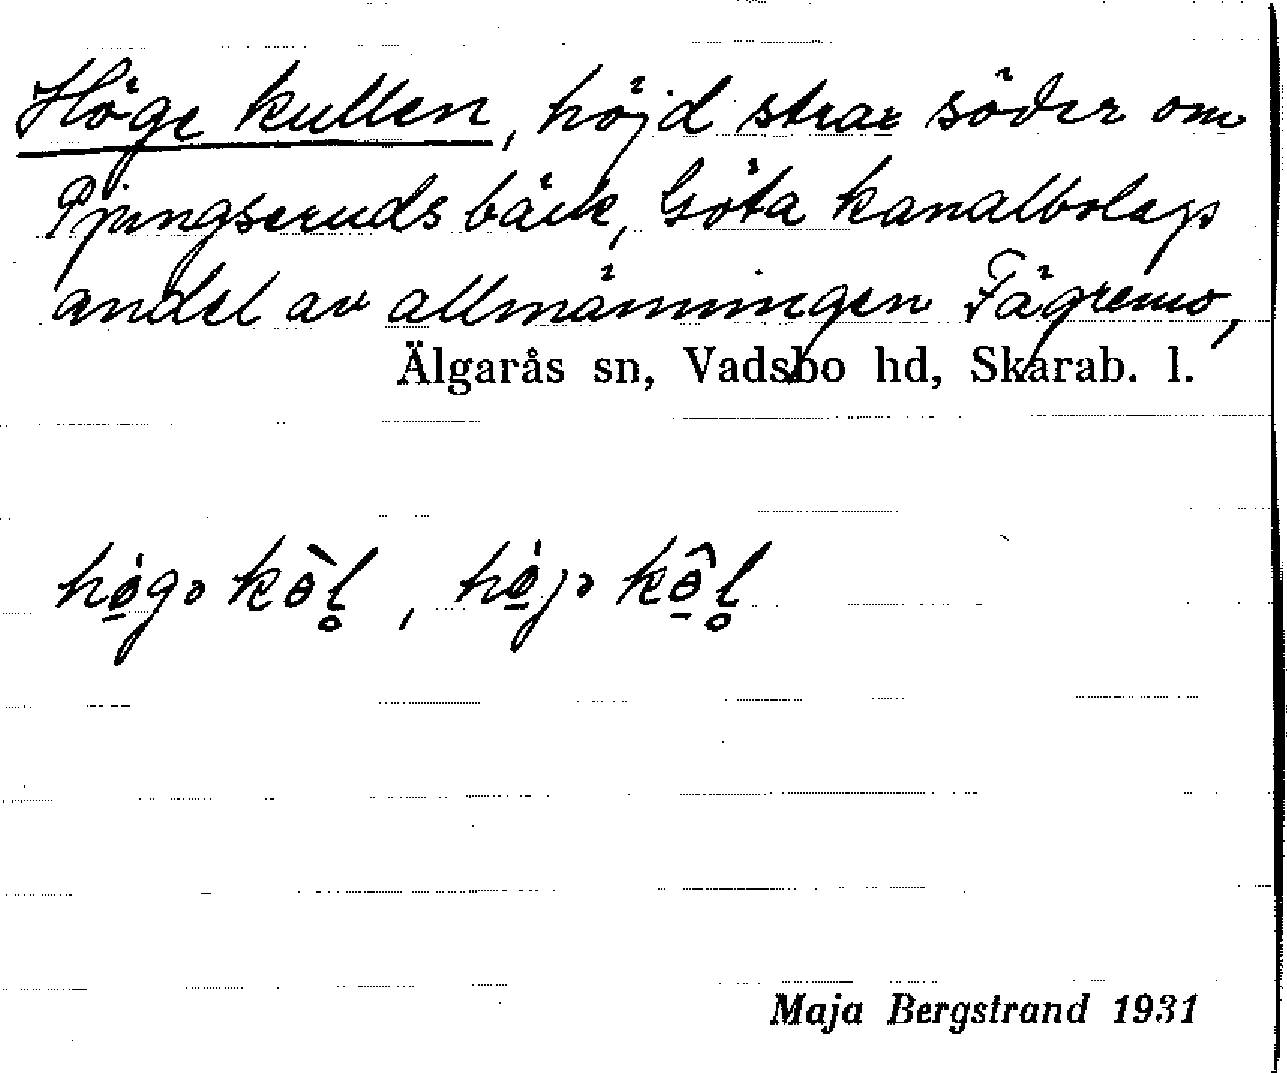 Höge kullen, höjd strax söder om
Pjungseruds bäck, Göta kanalbolags
andel av allmänningen Fägremo,
Älgarås sn, Vadsbo hd, Skarab. l.
Maja Bergstrand 1931